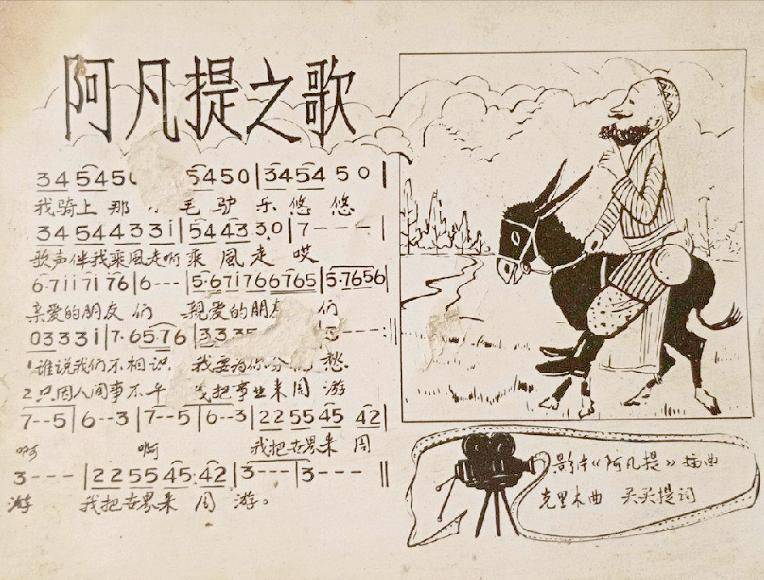 阿凡提之歌
345450 5450|3454 50|
我骑上那 毛驴乐悠悠
34 5444 33i|5443 30|7---|
歌声伴我乘風走啊乘風走哎
6·7i i7i 76|6---|5·67i7666765|5·7656|
亲爱的朋友们 親爱的朋友们
0333i|7·65·76|333
1谁说我们不相识 我要为你分 愁
2只因人间事不平 我把事业来周游
7--5|6--3|7--5|6--3|2255 45 42|
啊 啊 我把世界来周
3---|2255 45·42|3---|3---‖
游 我把世界来周游。
影片《阿凡提》插曲
克里木曲 买买提词